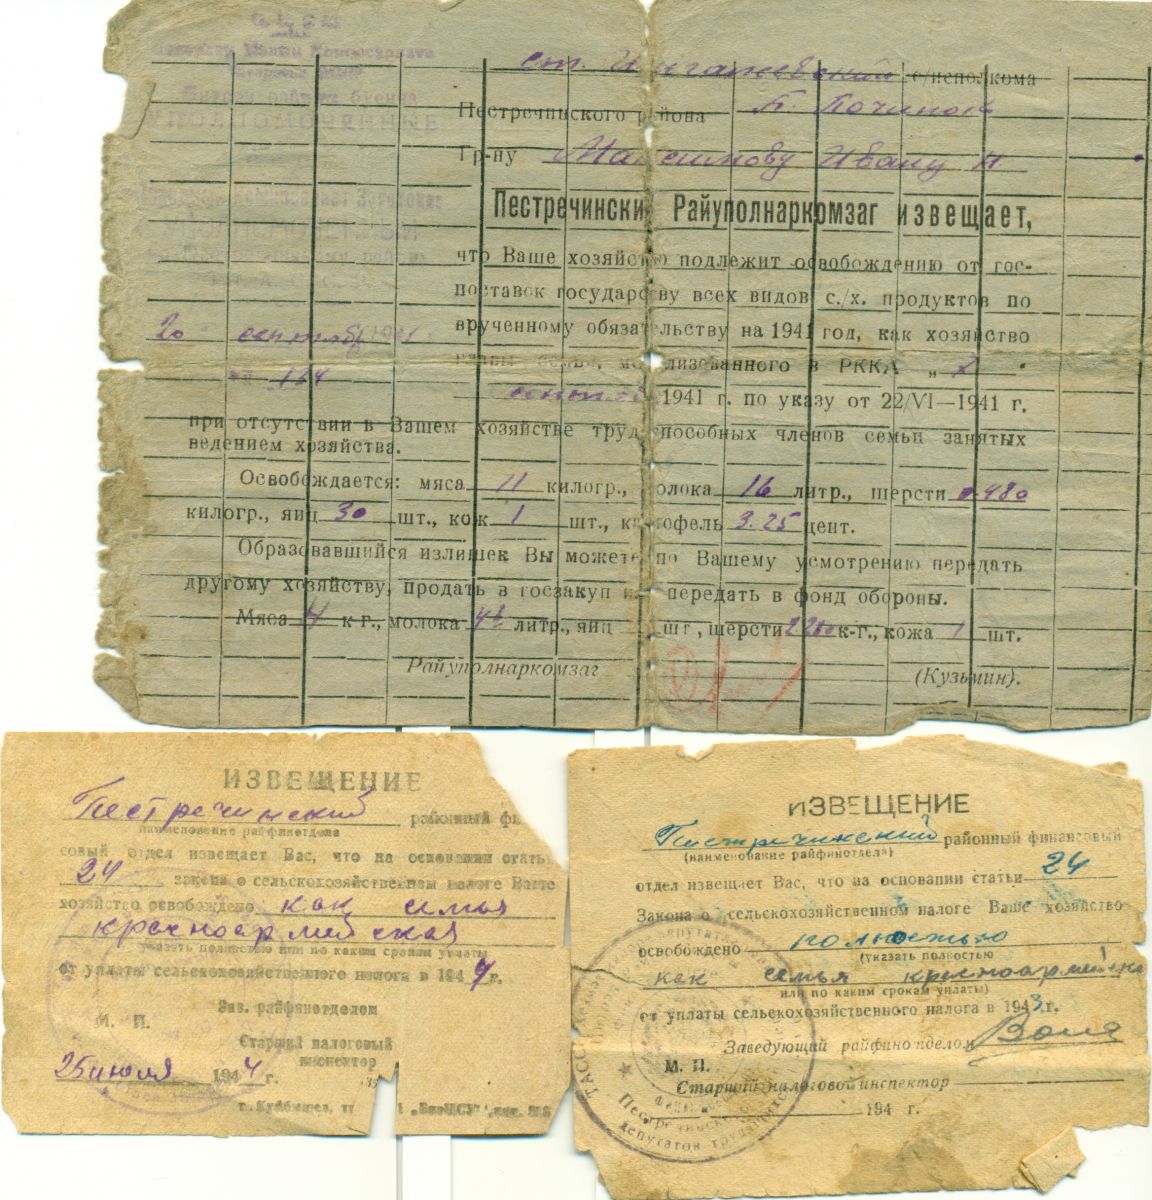 с/исполкома
Пестречинского района П. Починок
Гр-ну Максимову Ивану Н
Пестречинский Райуполнаркомзаг извещает,
что Ваше хозяйство подлежит освобождению от гос-
поставок государству всех видов с./х. продуктов по
врученному обязательству на 1941 год, как хозяйство
главы семьи, мобилизованного в РККА „
1941 г. по указу от 22/VI—1941 г.
20 сентября
№ 114
при отсутствии в Вашем хозяйстве трудоспособных членов семьи занятых
ведением хозяйства.
Освобождается: мяса 11 килогр., молока 16 литр., шерсти 0.480
килогр., яиц 30 шт., кож 1 шт., картофель 3.25 цент.
Образовавшийся излишек Вы можете по Вашему усмотрению передать
другому хозяйству, продать в госзакуп или передать в фонд обороны.
Мяса 4 к-г., молока литр., яиц шт, шерсти к-г., кожа 1 шт.
Райуполнаркомзаг (Кузьмин).
ИЗВЕЩЕНИЕ
Пестречинский районный фи
наименование райфинотдела
совый отдел извещает Вас, что на основании стать
24 закона о сельскохозяйственном налоге Ваше
хозяйство освобождено как семья
красноармейская
указать полностью или по каким срокам уплаты
от уплаты сельскохозяйственного налога в 1944 г.
Зав. райфинотделом
М. П.
Старший налоговый
инспектор
25 июля 1944 г.
ИЗВЕЩЕНИЕ
Пестречинский районный финансовый
(наименование райфинотдела)
отдел извещает Вас, что на основании статьи 24
Закона о сельскохозяйственном налоге Ваше хозяйство
освобождено полностью
(указать полностью
как семья красноармейска
или по каким срокам уплаты)
от уплаты сельскохозяйственного налога в 1943 г.
Заведующий райфинотделом
М. П.
Старший налоговой инспектор
194 г.